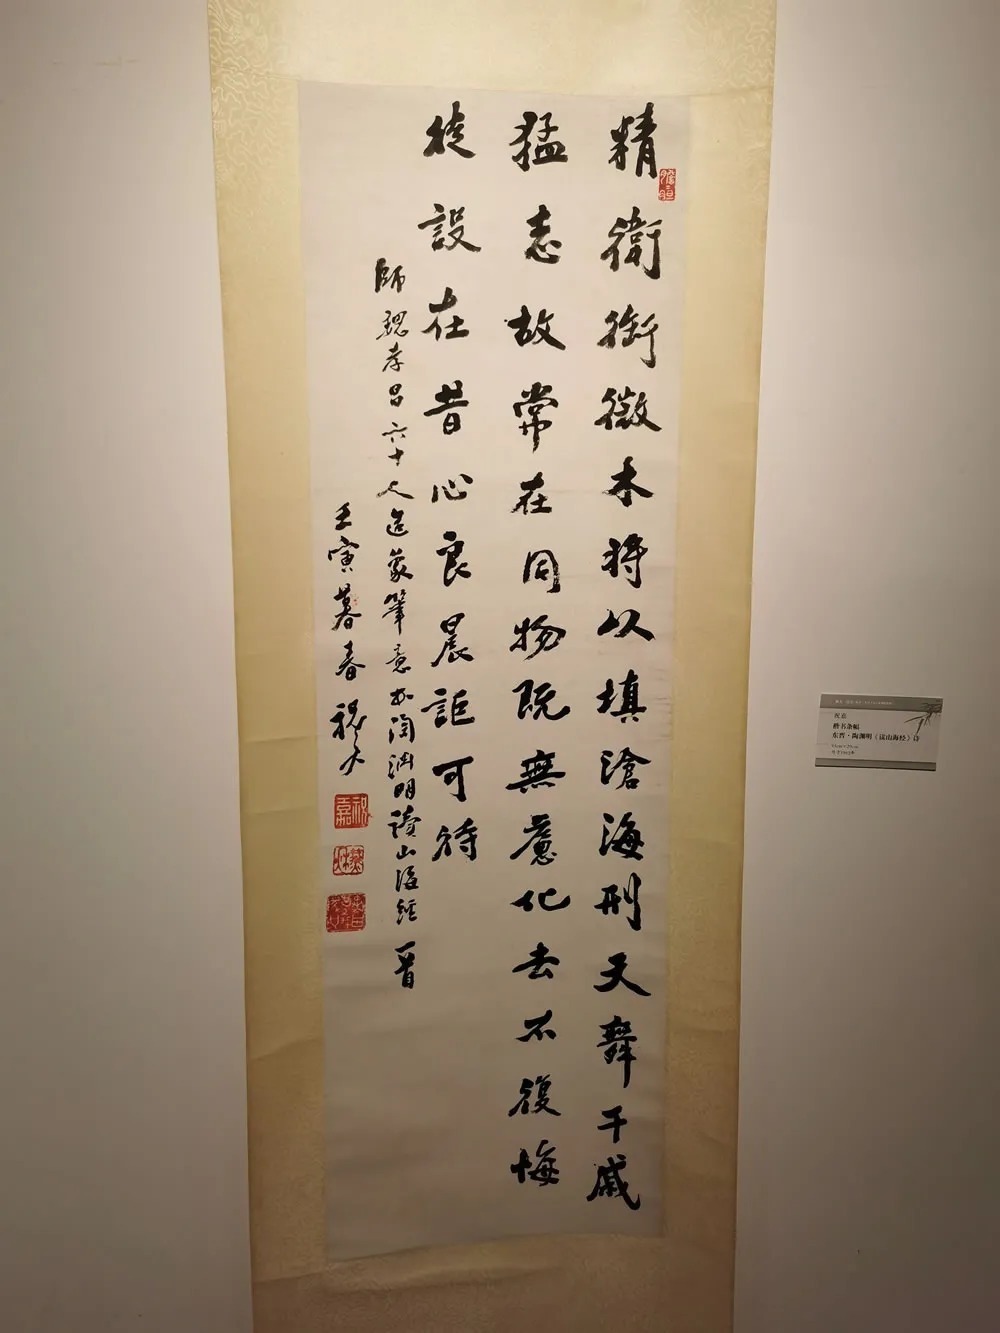 精衛銜微木将以填滄海刑天舞干戚
猛志故常在同物既無慮化去不復悔
徒設在昔心良晨詎可待
師魏孝昌六十人造象筆意書陶淵明讀山海經一首
壬寅暮春祝嘉
祝嘉
祝嘉
楷书条幅
东晋·陶渊明《读山海经》诗